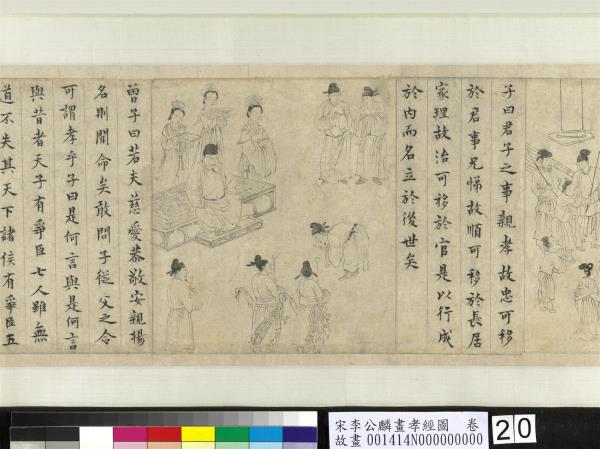 子曰君子之事親孝故忠可移
於君事兄悌故順可移於長居
家理故治可移於官是以行成
於內而名立於後世矣
曾子曰若夫慈愛恭敬安親揚
名則聞命矣敢問子從父之令
可謂孝乎子曰是何言與是何言
與昔者天子有爭臣七人雖無
道不失其天下諸侯有爭臣五
宋李公麟畫孝經圖 卷
故畫 001414N000000000
20